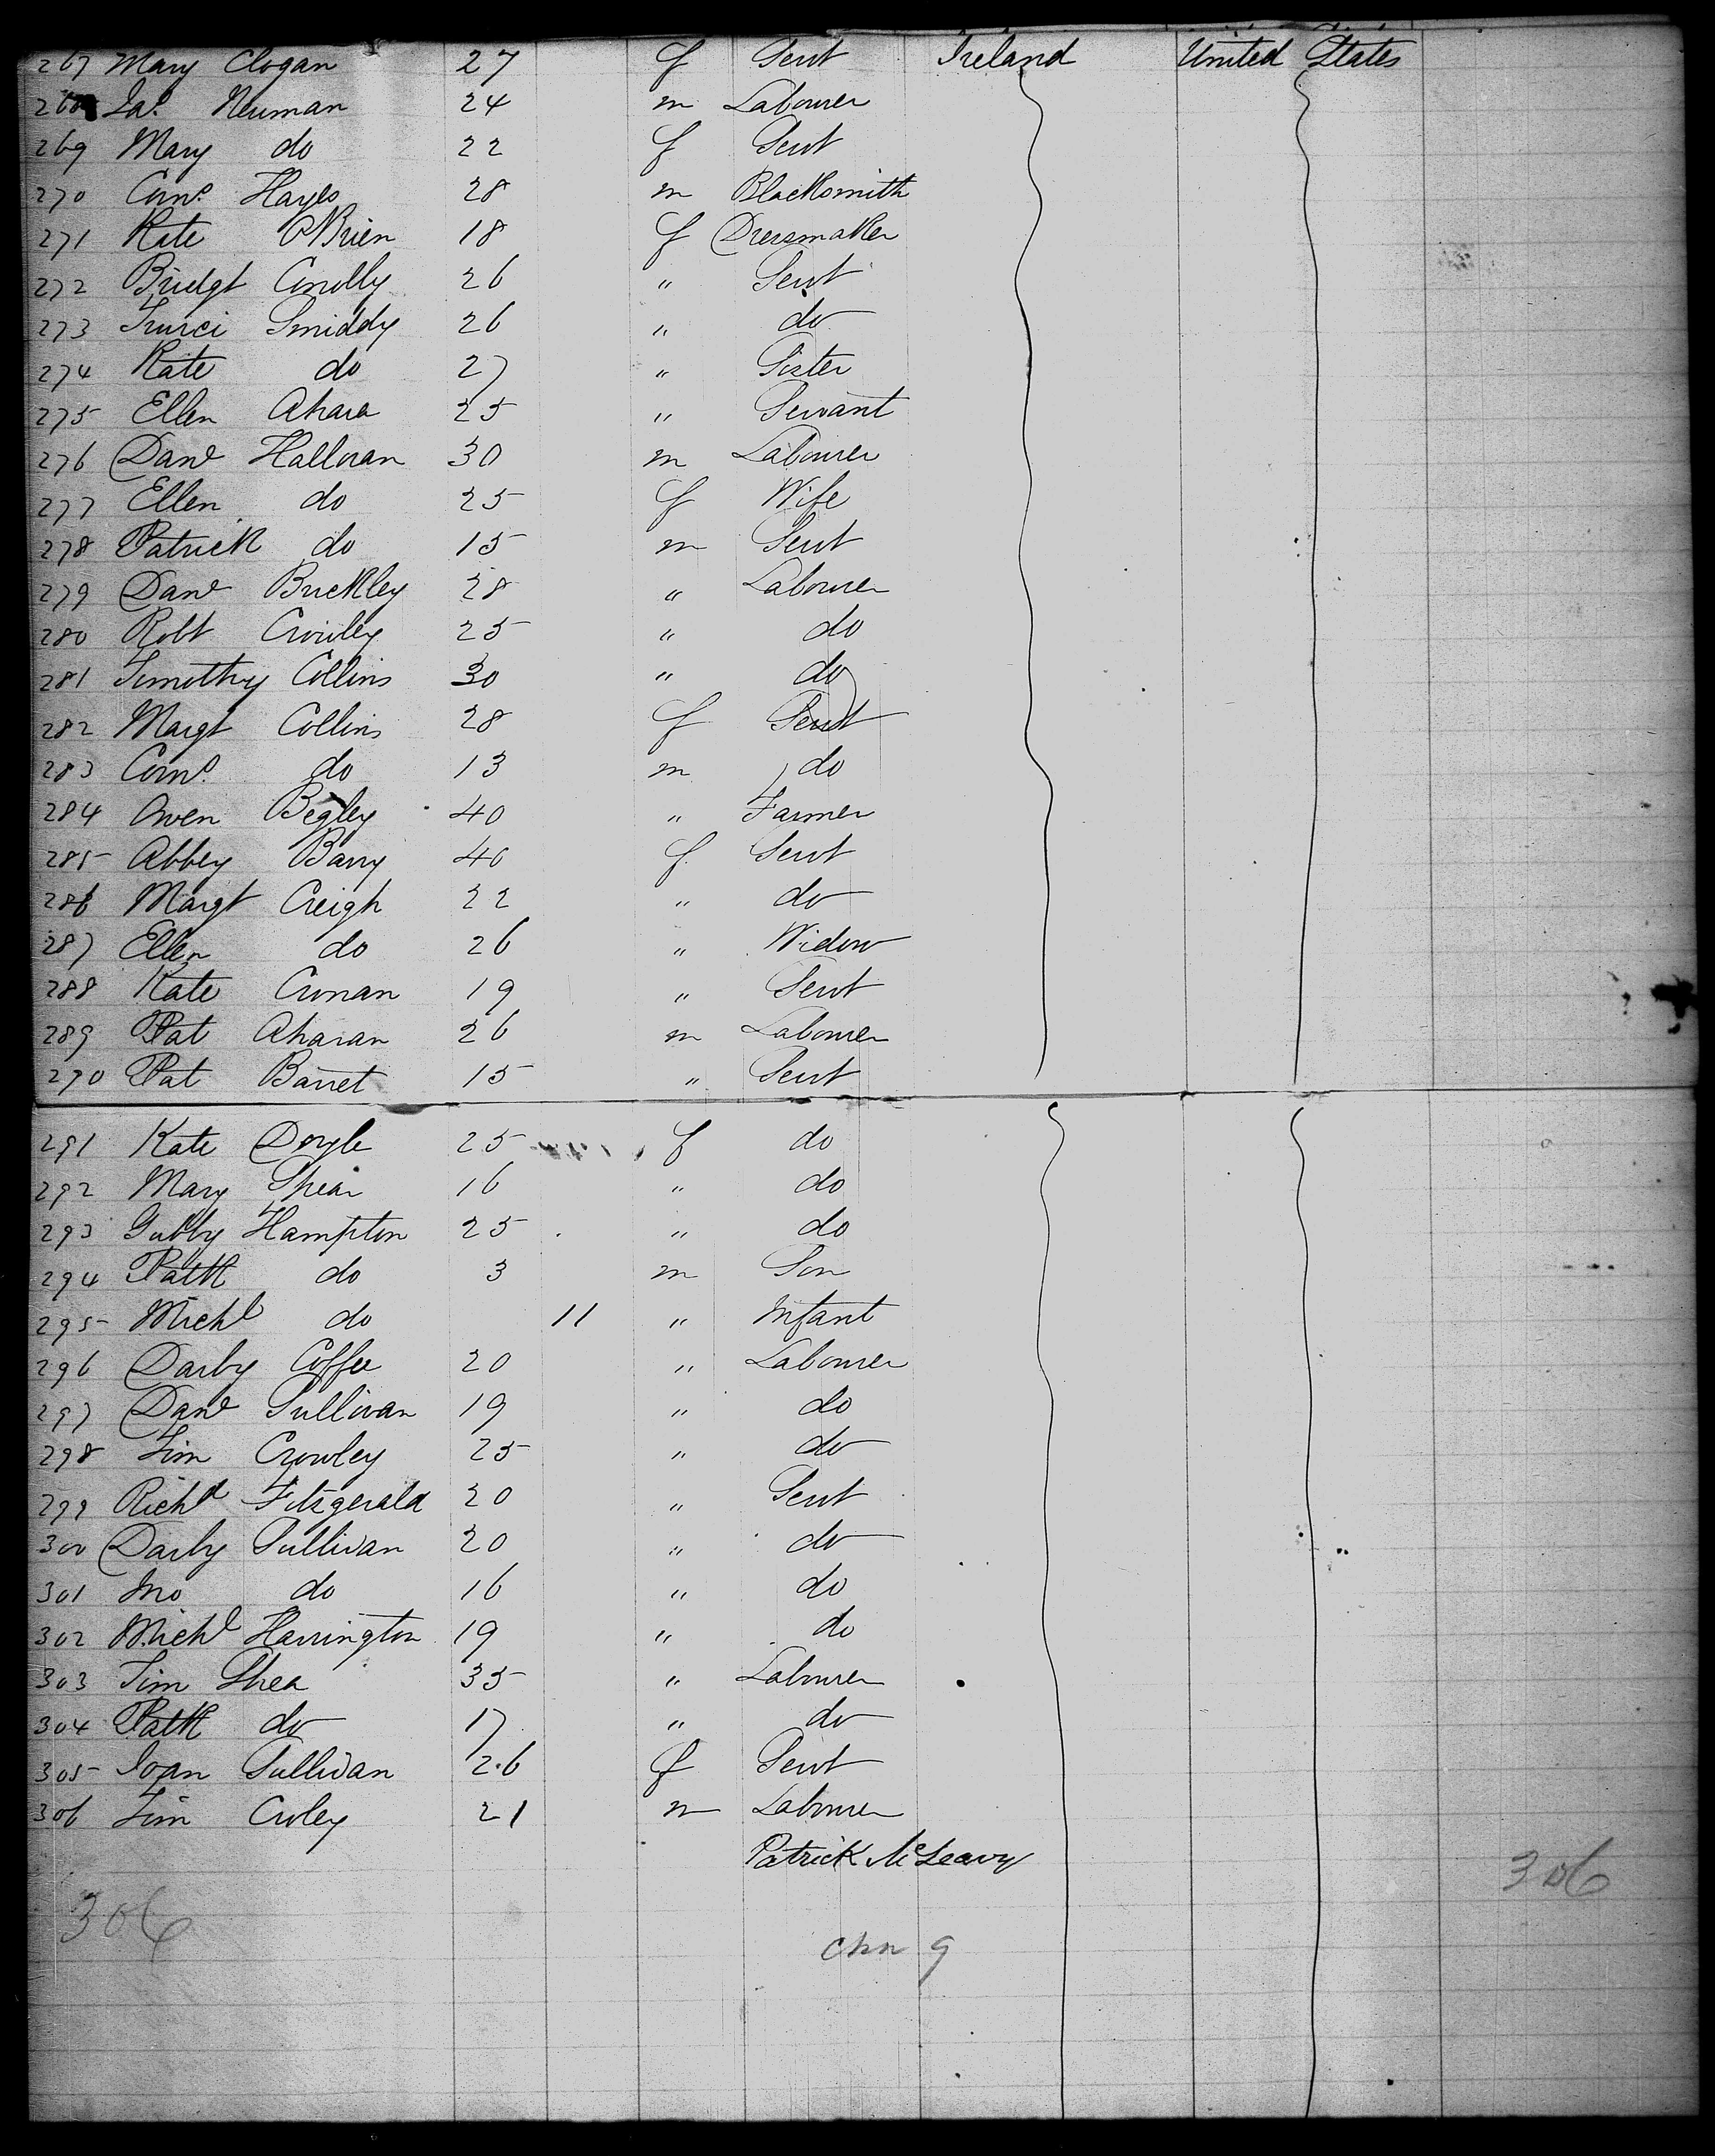 267 Mary Clogan 27 f Servt Ireland United States
268 Jas. Neuman 24 m Labourer
269 Mary do 22 f Servt
270 Corns. Hayes 28 m Blacksmith
271 Kate O'Brien 18 f Dressmaker
272 Bridgt Conolly 26 " Servt
273 Smiddy 26 " do
274 Kate do 27 " Sister
275 Ellen Ahara 25 " Servant
276 Danl Halloran 30 m Labourer
277 Ellen do 25 f Wife
278 Patrick do 15 m Servt
279 Danl Buckley 28 " Labourer
280 Robt Crowley 25 " do
281 Timothy Collins 30 " do
282 Margt Collins 28 f Servt
283 Corns. do 13 m do
284 Owen Begley 40 " Farmer
285 Abbey Barry 40 f Servt
286 Margt Creigh 22 " do
287 Ellen do 26 " Widow
288 Kate Cronan 19 " Servt
289 Pat Aharan 26 m Labourer
290 Pat Barret 15 " Servt
291 Kate Doyle 25 f do
292 Mary Shear 16 " do
293 Gubby Hampton 25 " do
294 Patk do 3 m Son
295 Michl do 11 " Infant
296 Darby Coffee 20 " Labourer
297 Danl Sullivan 19 " do
298 Tim Crowley 25 " do
299 Richd Fitzgerald 20 " Servt
300 Darby Sullivan 20 " do
301 Jno do 16 " do
302 Michl Harrington 19 " do
303 Tim Shea 35 " Labourer
304 Patk do 17 " do
305 Joan Sullivan 26 f Servt
306 Tim Croley 21 m Labourer
Patrick McLeavy
306 306
chn 9